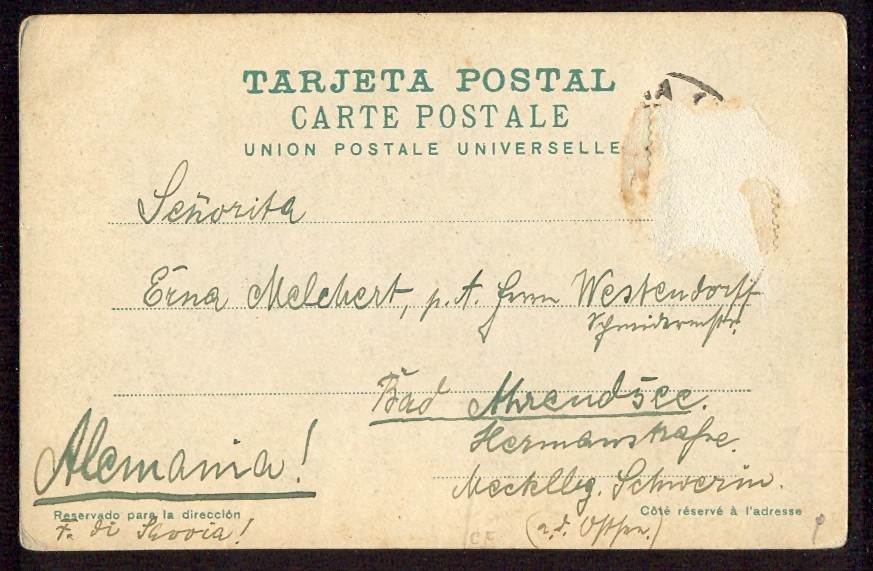 TARJETA POSTAL
CARTE POSTALE
UNION POSTALE UNIVERSELLE
Señorita
Erna Melchert, p. A. Herrn Westendorff
Schneidermstr.
Bad Ahrendsee.
Hermanstraße.
Alemania!
Mecklbg. Schwerin.
Reservado para la dirección
Côté réservé à l'adresse
di Savoia!
(a. d. Ostsee.)
CF